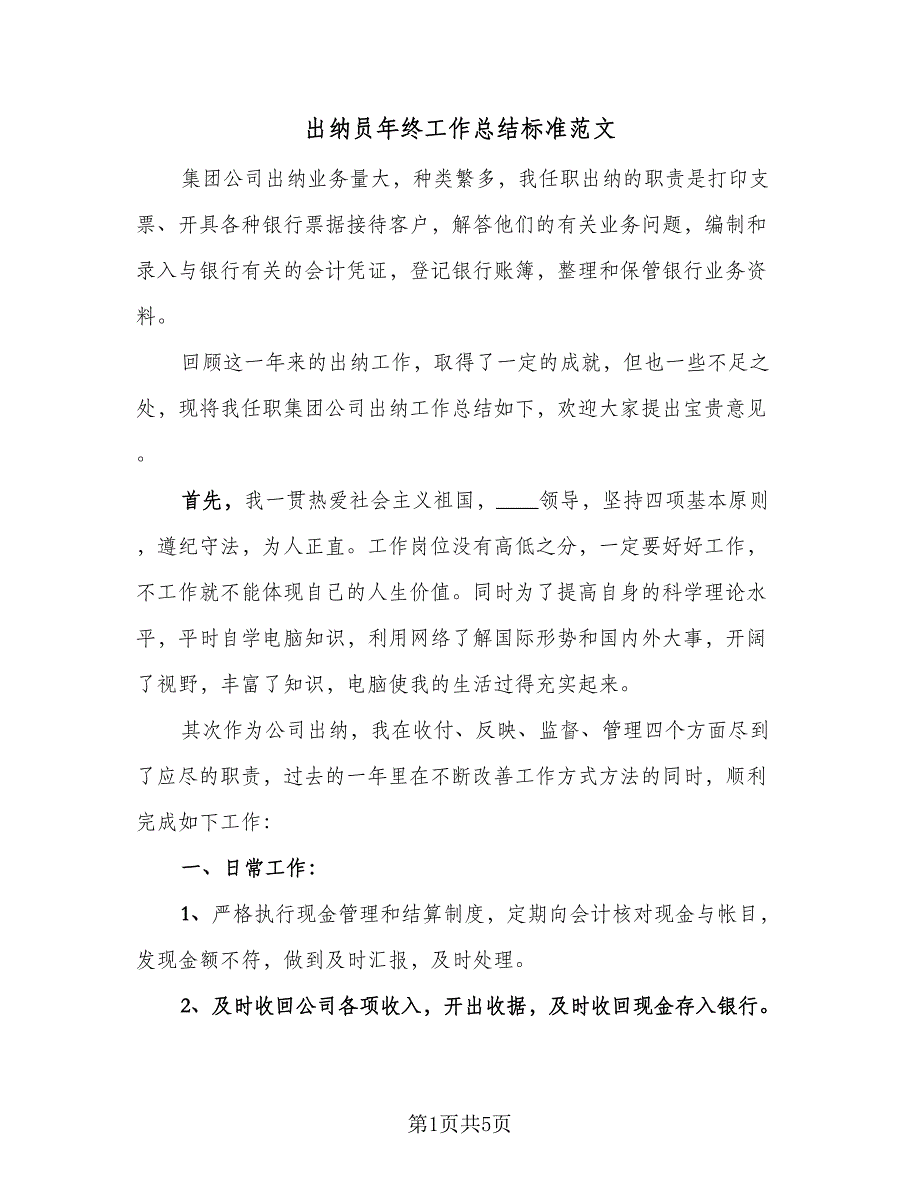 出纳员年终工作总结标准范文
集团公司出纳业务量大，种类繁多，我任职出纳的职责是打印支
票、开具各种银行票据接待客户，解答他们的有关业务问题，编制和
录入与银行有关的会计凭证，登记银行账簿，整理和保管银行业务资
料。
回顾这一年来的出纳工作，取得了一定的成就，但也一些不足之
处，现将我任职集团公司出纳工作总结如下，欢迎大家提出宝贵意见
。
首先，我一贯热爱社会主义祖国，____领导，坚持四项基本原则
，遵纪守法，为人正直。工作岗位没有高低之分，一定要好好工作，
不工作就不能体现自己的人生价值。同时为了提高自身的科学理论水
平，平时自学电脑知识，利用网络了解国际形势和国内外大事，开阔
了视野，丰富了知识，电脑使我的生活过得充实起来。
其次作为公司出纳，我在收付、反映、监督、管理四个方面尽到
了应尽的职责，过去的一年里在不断改善工作方式方法的同时，顺利
完成如下工作：
一、日常工作：
1、严格执行现金管理和结算制度，定期向会计核对现金与帐目，
发现金额不符，做到及时汇报，及时处理。
2、及时收回公司各项收入，开出收据，及时收回现金存入银行。
第1页共5页